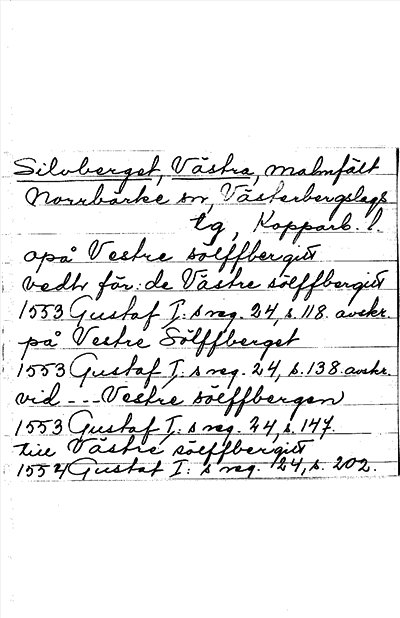 Silvberget, Västra, malmfält
Norrbärke sn, Västerbergslags
tg, Kopparb. l.
opå Vestre sölffbergit
vedtr för: de Västre sölffbergit
1553 Gustaf I: s reg. 24, s. 118. avskr.
på Vestre Sölffberget
1553 Gustaf I: s reg. 24, s. 138. avskr.
vid --- Vestre sölffbergen
1553 Gustaf I: s reg. 24, s. 147.
till Västre sölffbergit
1554 Gustaf I: s reg. 24, s. 202.